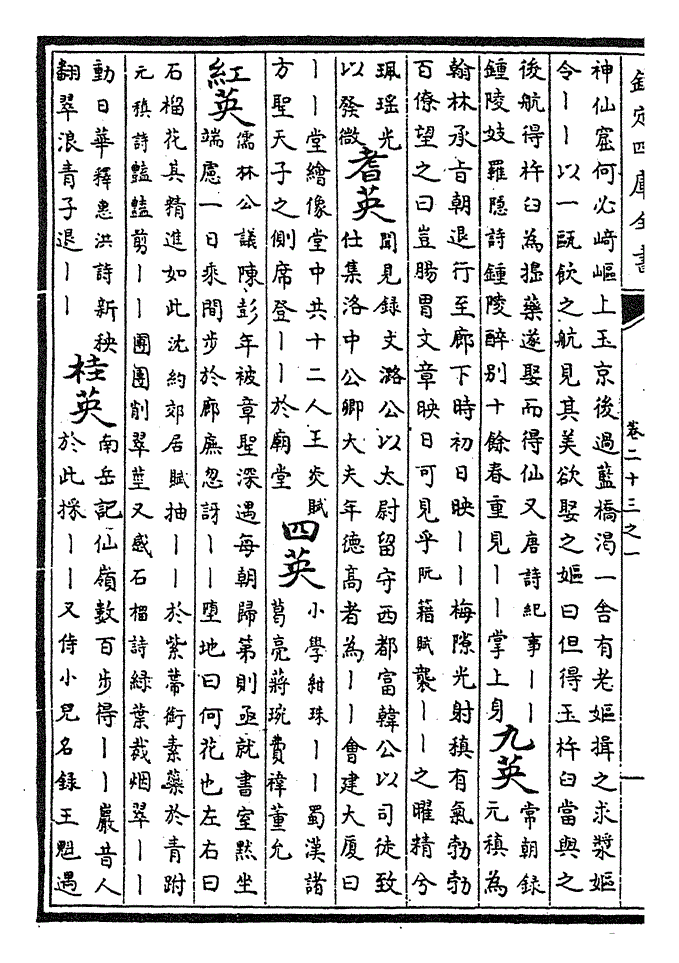 欽定四庫全書
卷二十三之一
一
神仙窟何必﨑嶇上玉京後過藍橋渴一舍有老嫗揖之求漿嫗
令丨丨以一甌飲之航見其美欲娶之嫗曰但得玉杵臼當與之
後航得杵臼為搗藥遂娶而得仙又唐詩紀事丨丨
鍾陵妓羅隱詩鍾陵醉别十餘春重見丨丨掌上身
九英
常朝録
元稹為
翰林承旨朝退行至廊下時初日映丨丨梅隙光射稹有氣勃勃
百僚望之曰豈腸胃文章映日可見乎阮籍賦襲丨丨之曜精兮
珮瑶光
以發微
耆英
聞見録文潞公以太尉留守西都富韓公以司徒致
仕集洛中公卿大夫年德高者為丨丨會建大厦曰
丨丨堂繪像堂中共十二人王炎賦
方聖天子之側席登丨丨於廟堂
四英
小學紺珠丨丨蜀漢諸
葛亮蔣琬費禕董允
紅英
儒林公議陳彭年被章聖深遇每朝歸第則亟就書室黙坐
端慮一日乘間步於廊廡忽訝丨丨墮地曰何花也左右曰
石榴花其精進如此沈約郊居賦抽丨丨於紫蔕銜素蘂於青跗
元稹詩豔豔剪丨丨團團削翠莖又感石榴詩緑葉裁烟翠丨丨
動日華釋惠洪詩新秧
翻翠浪青子退丨丨
桂英
南岳記仙嶺數百步得丨丨巖昔人
於此採丨丨又侍小兒名録王魁遇